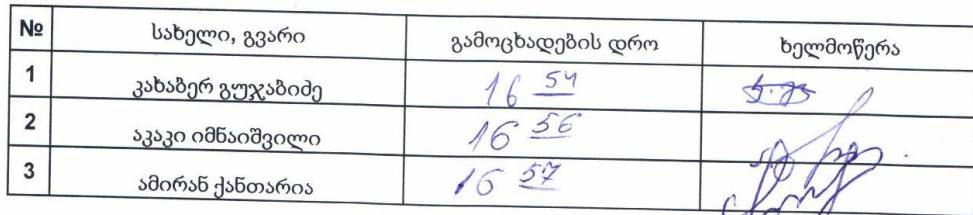 № სახელი, გვარი გამოცხადების დრო ხელმოწერა
1 კახაბერ გუჯაბიძე 16 54
2 აკაკი იმნაიშვილი 16 56
3 ამირან ქანთარია 16 57